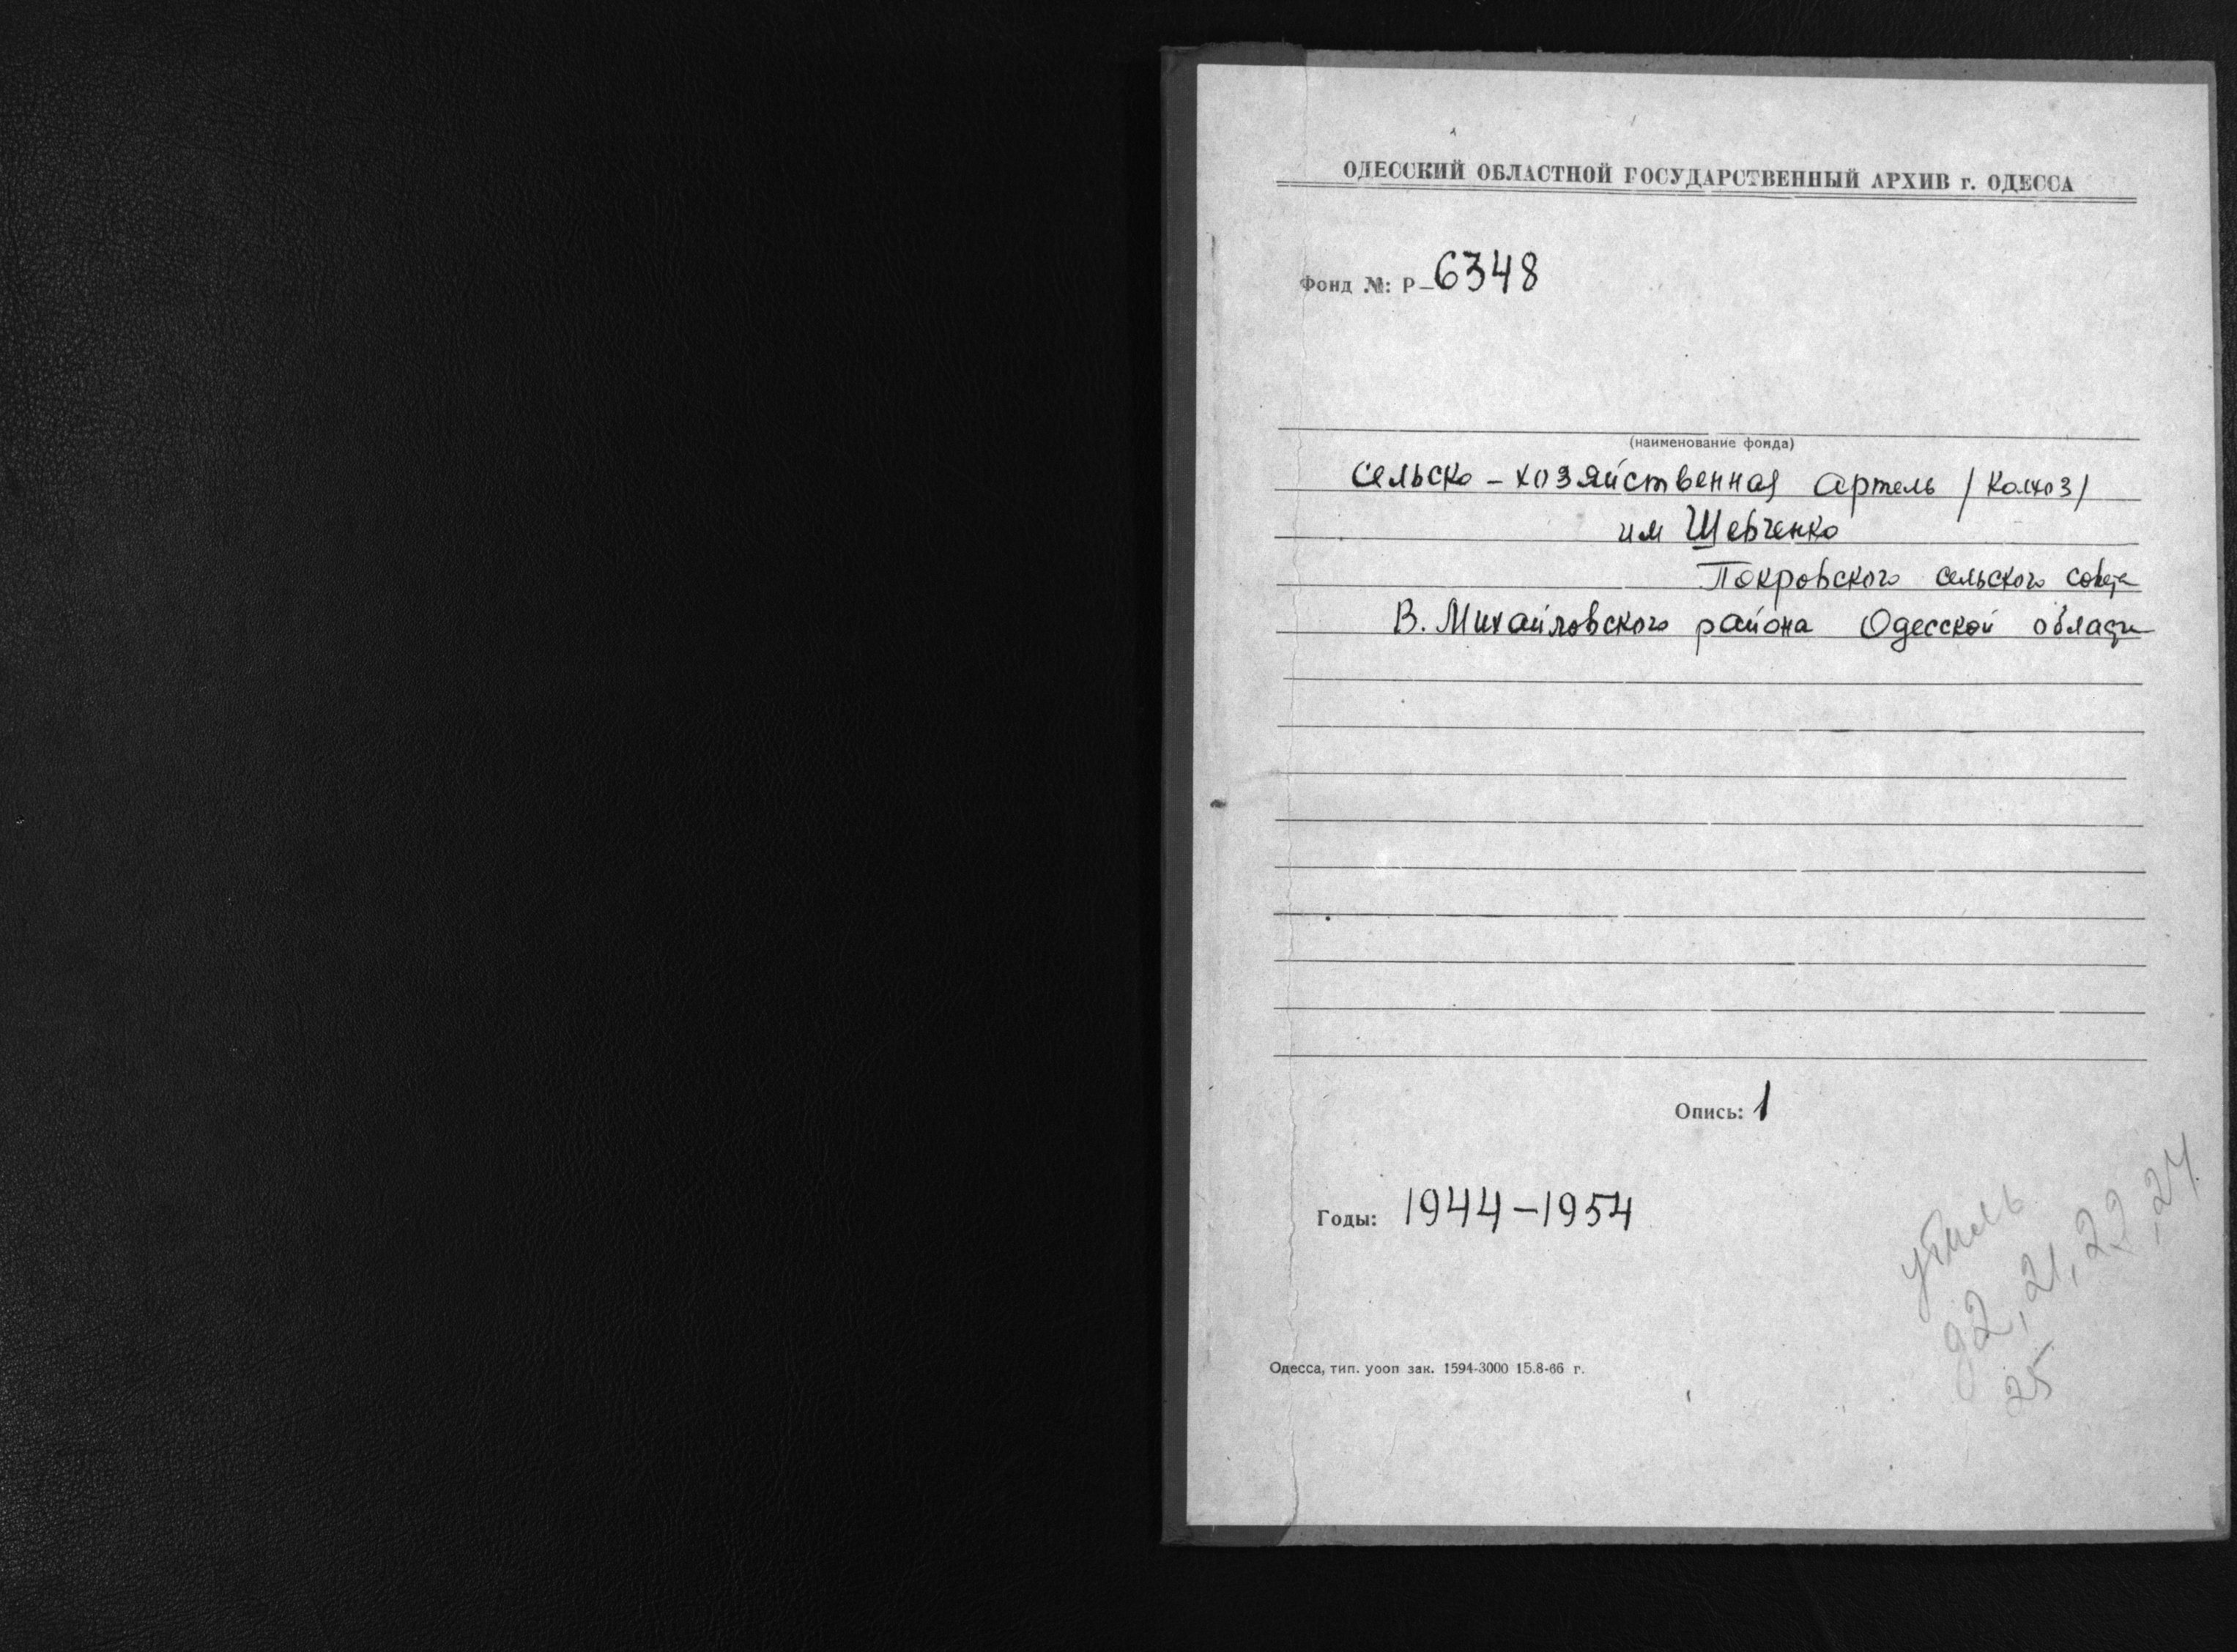 ОДЕССКИЙ ОБЛАСТНОЙ ГОСУДАРСТВЕННЫЙ АРХИВ г. ОДЕССА
Фонд №: Р–6348
(наименование фонда)
Сельско – хозяйственная артель / колхоз /
им Шевченко
Покровского сельского совета
В. Михайловского района Одесской области
Опись: 1
Годы: 1944–1954
Одесса, тип. уооп зак. 1594-3000 15.8-66 г.
утиль
д2, 21, 22, 24
25